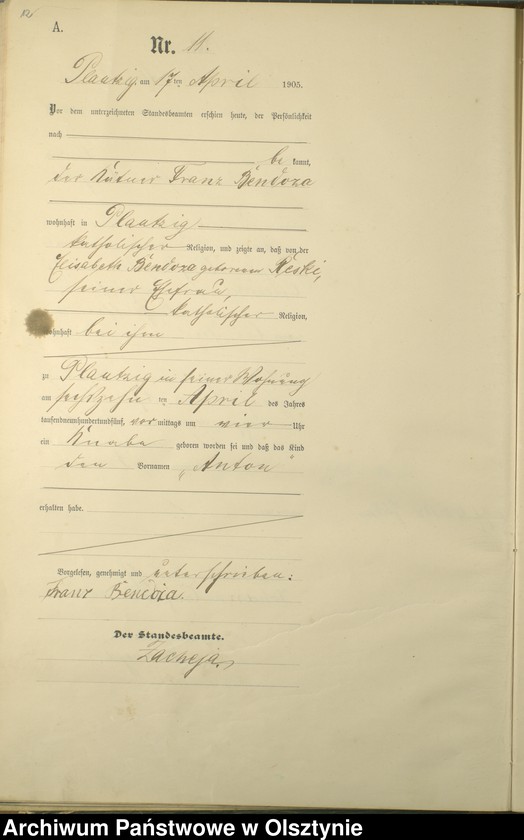 A.
Nr. 11.
Plautzig am 17ten April 1905.
Vor dem unterzeichneten Standesbeamten erschien heute, der Persönlichkeit
nach
be kannt,
der Kätner Franz Bendoza
wohnhaft in Plautzig
katholischer Religion, und zeigte an, daß von der
Elisabeth Bendoza geborenen Reski,
seiner Ehefrau,
katholischer Religion,
wohnhaft bei ihm
zu Plautzig in seiner Wohnung
am sechszehn ten April des Jahres
tausendneunhundertundfünf, vor mittags um vier Uhr
ein Knabe geboren worden sei und daß das Kind
den Vornamen „Anton"
erhalten habe.
Vorgelesen, genehmigt und unterschrieben:
Franz Bendoza.
Der Standesbeamte.
Zacheja.
Archiwum Państwowe w Olsztynie